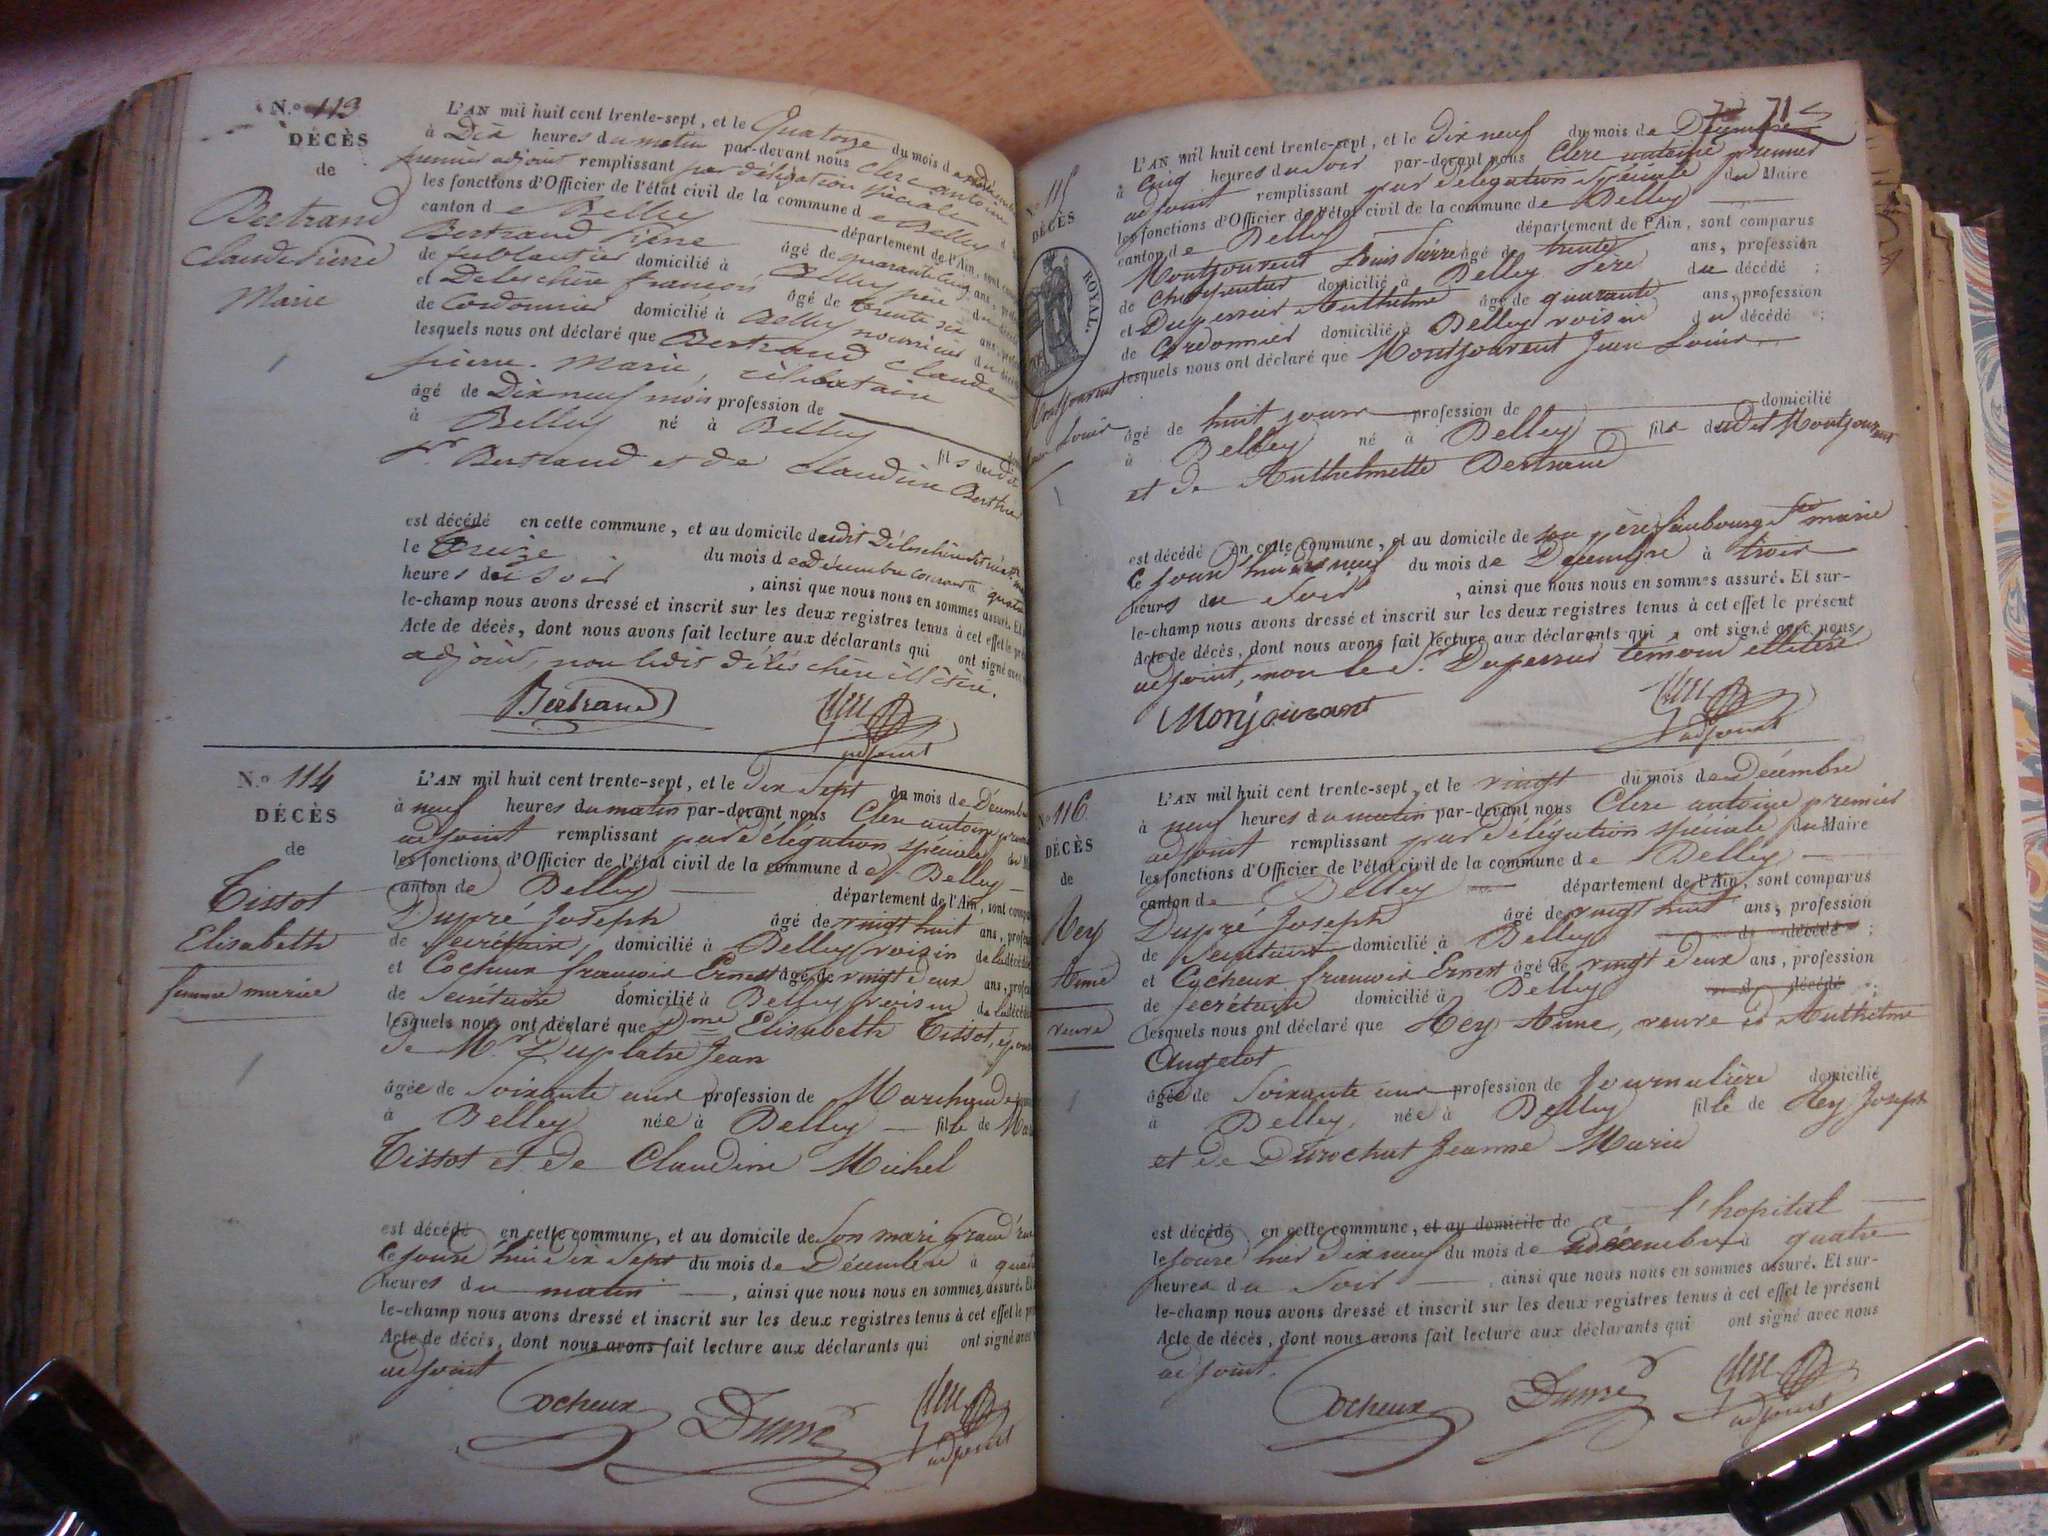 N.º 113
DÉCÈS
de
Bertrand
Claude Pierre
Marie
L'AN mil huit cent trente-sept, et le Quatorze du mois d
à Dix heures du matin par-devant nous Clerc antoine
premier adjoint remplissant par délégation spéciale
les fonctions d'Officier de l'état civil de la commune de Belley
canton de Belley département de l'Ain, sont
Bertrand Pierre âgé de quarante cinq ans,
de domicilié à Belley père du
et Deleschère françois, âgé de trente six ans,
de Cordonnier domicilié à Belley nourricier du
lesquels nous ont déclaré que Bertrand Claude
pierre Marie, célibataire
âgé de Dix neuf mois profession de
à Belley né à Belley fils dudit
Sr. Bertrand et de Claudine
est décédé en cette commune, et au domicile dudit
le treize du mois de décembre courant à quatre
heures du soir , ainsi que nous nous en sommes assuré. Et
le-champ nous avons dressé et inscrit sur les deux registres tenus à cet effet le
Acte de décès, dont nous avons fait lecture aux déclarants qui ont signé avec
adjoint, non ledit illétéré.
Bertrand Clerc
adjoint
N.º 114
DÉCÈS
de
Tissot
Elisabeth
femme mariée
L'AN mil huit cent trente-sept, et le dix sept du mois de Décembre
à neuf heures du matin par-devant nous Clerc antoine
adjoint remplissant par délégation spéciale du
les fonctions d'Officier de l'état civil de la commune de Belley
canton de Belley département de l'Ain, sont
Dupré Joseph âgé de vingt huit ans,
de Secrétaire domicilié à Belley voisin de la
et Cocheux françois Ernest âgé de vingt deux ans,
de Secrétaire domicilié à Belley voisin de la
lesquels nous ont déclaré que Dme Elisabeth Tissot,
de Mr Duplatre Jean
âgée de Soixante ans profession de Marchande
à Belley née à Belley fille de
Tissot et de Claudine Michel
est décédé en cette commune, et au domicile de Son mari Grand'rue
le jourd'hui dix Sept du mois de Décembre à
heures du matin , ainsi que nous nous en sommes assuré. Et
le-champ nous avons dressé et inscrit sur les deux registres tenus à cet effet le
Acte de décès, dont nous avons fait lecture aux déclarants qui ont signé avec
adjoint
Cocheux Dupré Clerc
adjoint
71
N.º 115
DÉCÈS
ROYAL.
Montjouvent
Jean Louis
L'AN mil huit cent trente-sept, et le dix neuf du mois de Décembre
à Cinq heures du soir par-devant nous Clerc antoine premier
adjoint remplissant par délégation spéciale du Maire
les fonctions d'Officier de l'état civil de la commune de Belley
canton de Belley département de l'Ain, sont comparus
Montjouvent Louis Pierre âgé de trente ans, profession
de Charpentier domicilié à Belley Père du décédé ;
et Duperrier Anthelme âgé de quarante ans, profession
de Cordonnier domicilié à Belley voisin du décédé ;
lesquels nous ont déclaré que Montjouvent Jean Louis
âgé de huit jours profession de domicilié
à Belley né à Belley fils dudit Montjouvent
et de Anthelmette Bertrand
est décédé en cette commune, et au domicile de son père faubourg Ste marie
le jourd'hui dix neuf du mois de Décembre à trois
heures du Soir , ainsi que nous nous en sommes assuré. Et sur-
le-champ nous avons dressé et inscrit sur les deux registres tenus à cet effet le présent
Acte de décès, dont nous avons fait lecture aux déclarants qui ont signé avec nous
adjoint, non le Sr. Duperrier temoin illétéré
Monjouvant Clerc
adjoint
N.º 116
DÉCÈS
de
Hey
Anne
veuve
L'AN mil huit cent trente-sept, et le vingt du mois de Décembre
à neuf heures du matin par-devant nous Clerc antoine premier
adjoint remplissant par délégation spéciale du Maire
les fonctions d'Officier de l'état civil de la commune de Belley
canton de Belley département de l'Ain, sont comparus
Dupré Joseph âgé de vingt huit ans, profession
de Secrétaire domicilié à Belley de décédé ;
et Cocheux françois Ernest âgé de vingt deux ans, profession
de secrétaire domicilié à Belley décédé ;
lesquels nous ont déclaré que Hey Anne, veuve de Anthelme
Angelot
âgée de Soixante ans profession de Journalière domicilié
à Belley, née à Belley fille de Hey Joseph
et de Durochat Jeanne Marie
est décédé en cette commune, et au domicile de a l'hopital
le jour d'hier dix neuf du mois de décembre à quatre
heures du Soir , ainsi que nous nous en sommes assuré. Et sur-
le-champ nous avons dressé et inscrit sur les deux registres tenus à cet effet le présent
Acte de décès, dont nous avons fait lecture aux déclarants qui ont signé avec nous
adjoint.
Cocheux Dupré Clerc
adjoint